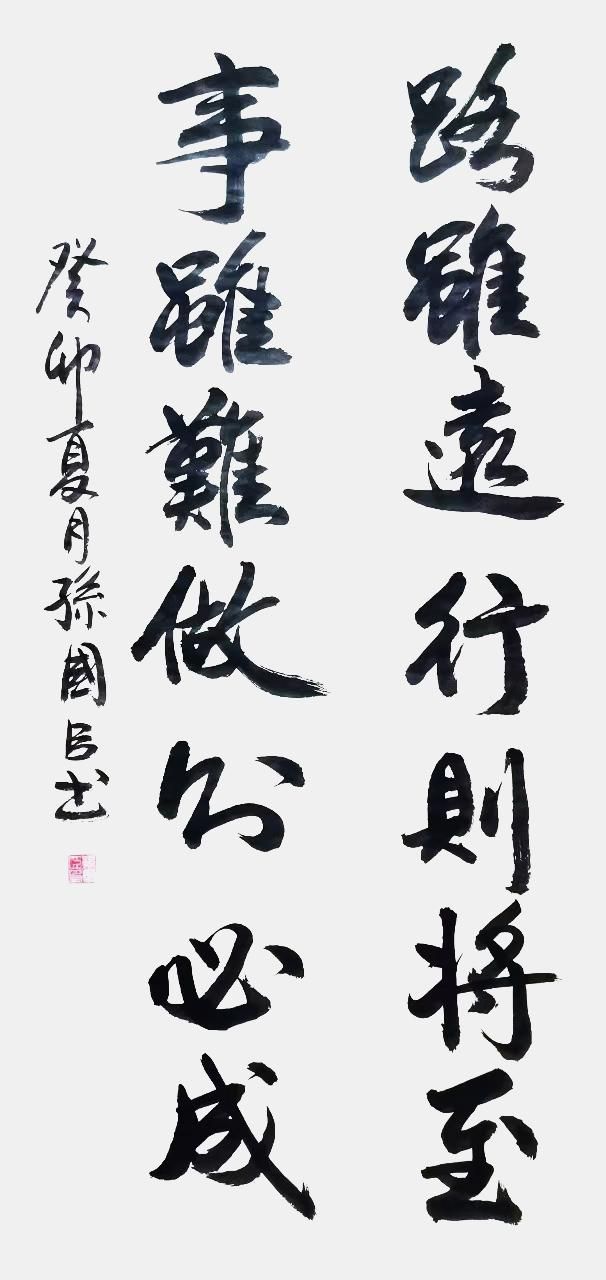 路雖遠行則將至
事雖難做則必成
癸卯夏月孫國召書